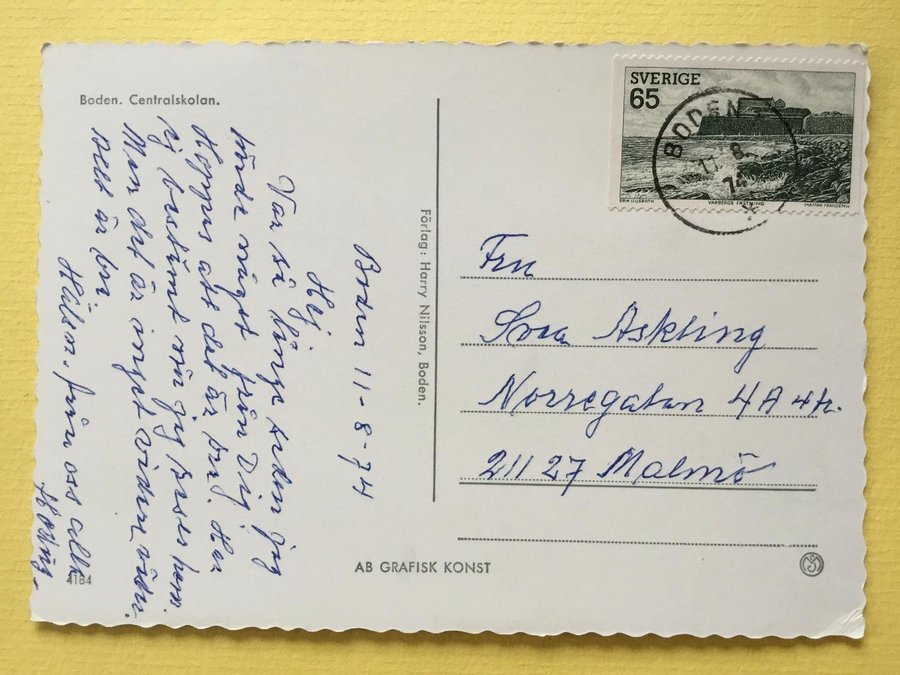 Boden. Centralskolan.
Boden 11-8-74
Hej
Var så länge sedan jag
hörde något från Dig.
Hoppas att det är bra. Har
ej bestämt när jag reser hem
Men det är inget vidare väder.
allt är bra
Hälsn. från oss alla
4184
Förlag: Harry Nilsson, Boden.
AB GRAFISK KONST
SVERIGE
65
BODEN
11 8
74
ERIK LILJEROTH
VARBERGS FÄSTNING
MAJVOR FRANZÉN
Fru
Svea Askling
Norregatan 4A
211 27 Malmö